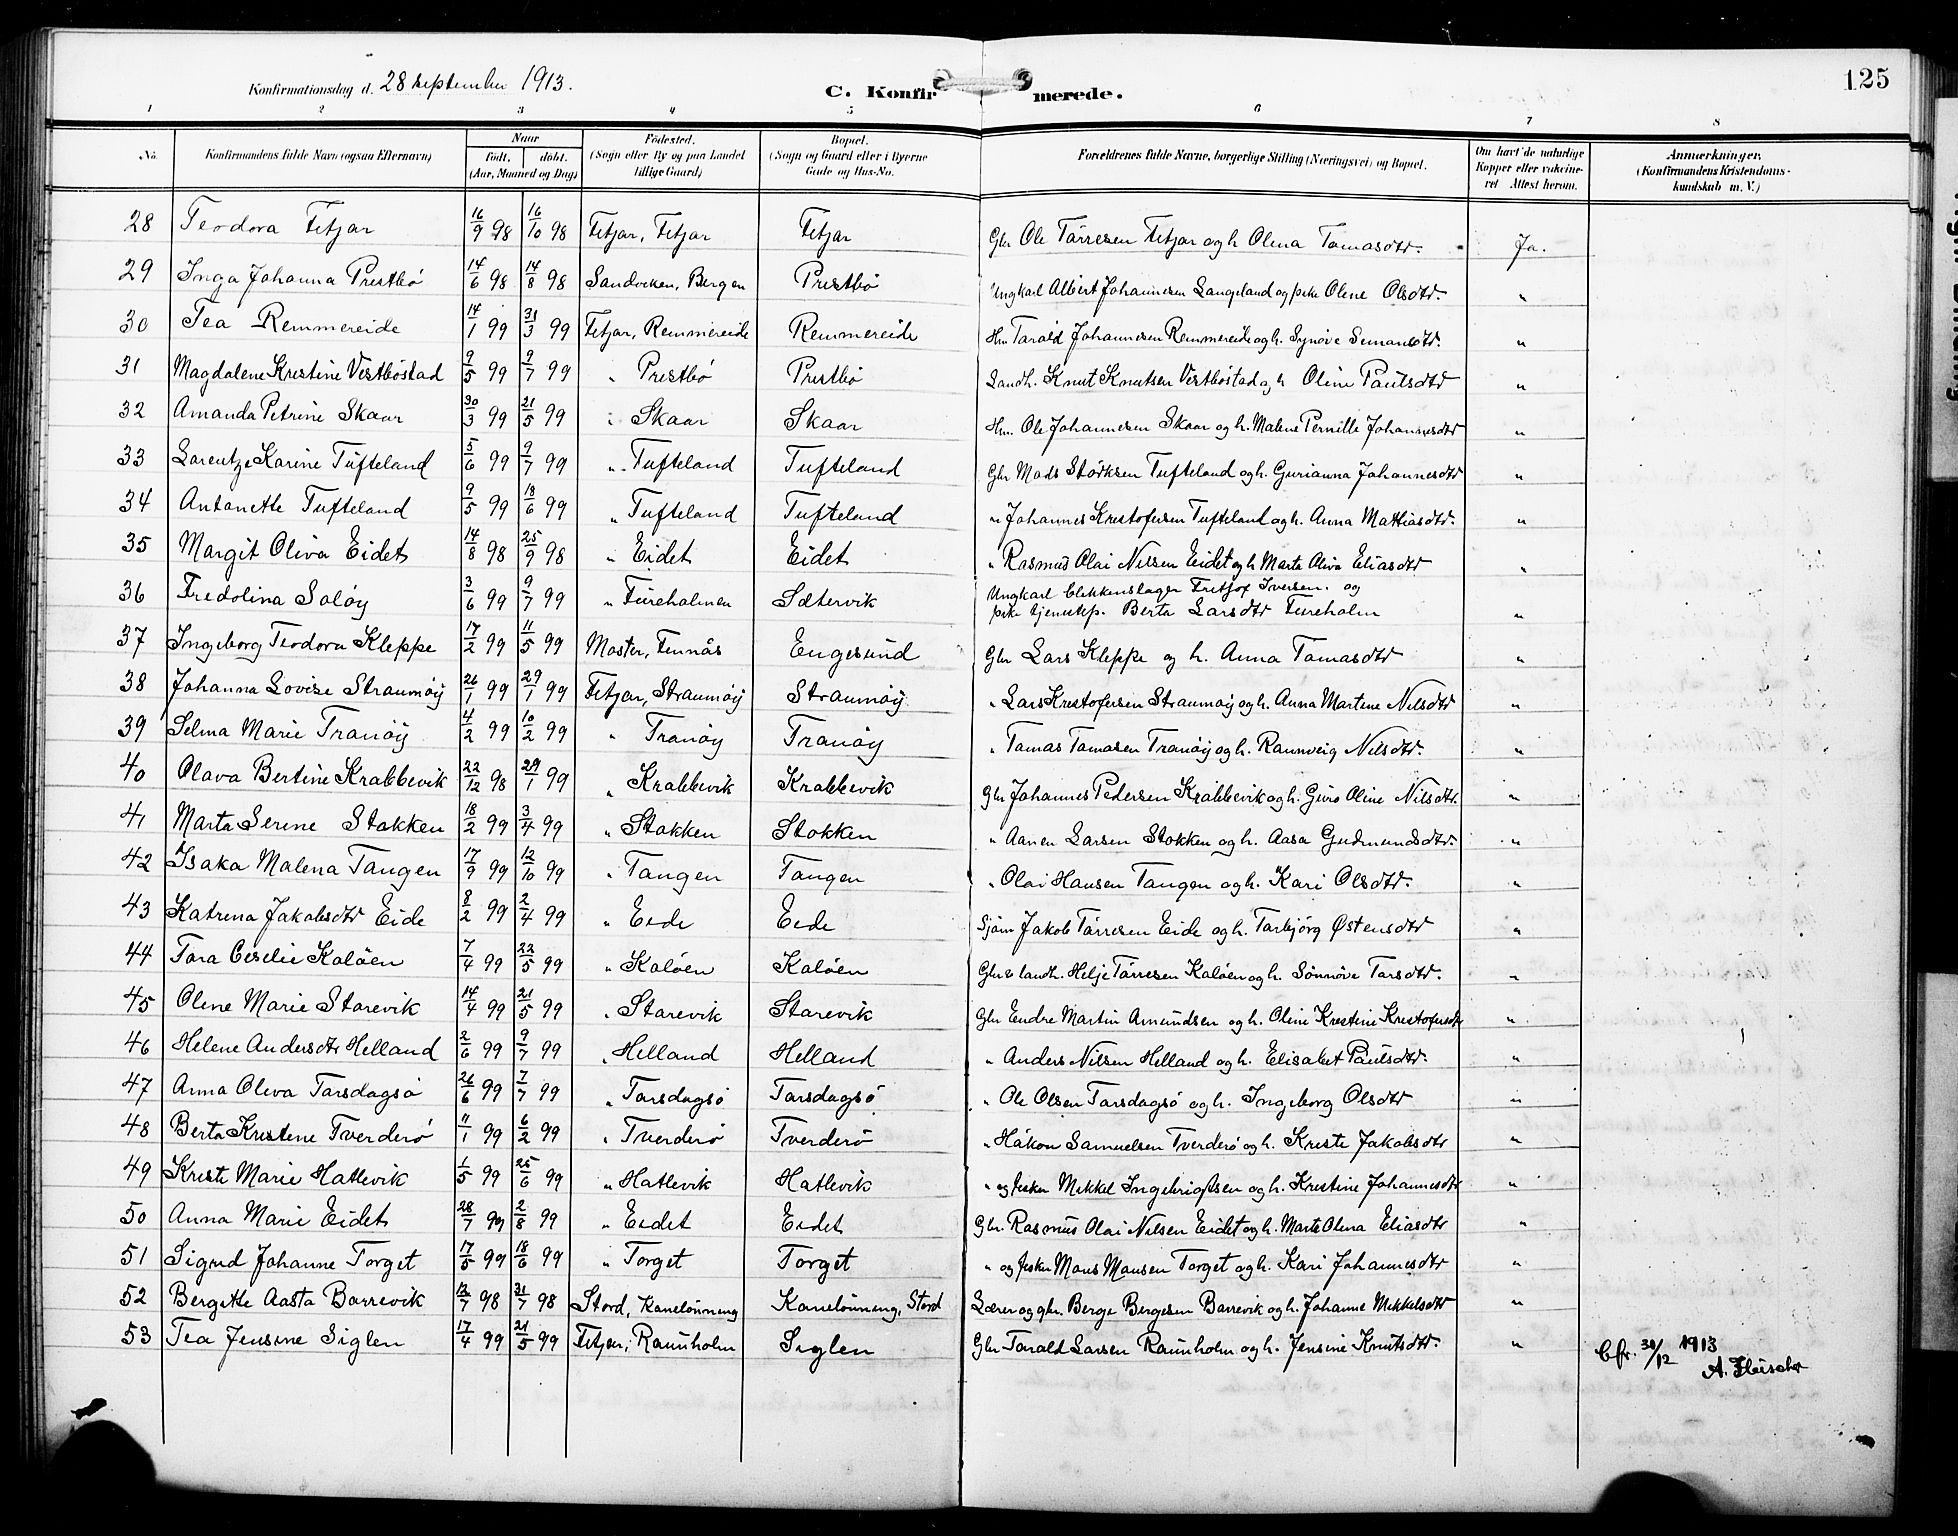 Konfirmationsdag d. 28 september 1913. C. Konfirmerede. 125
1 2 3 4 5 6 7 8
No. Konfirmandens fulde Navn (ogsaa Efternavn) Naar født, døbt. (Aar, Maaned og Dag) Fødested. (Sogn eller By og paa Landet tillige Gaard) Bopæl. (Sogn og Gaard eller i Byerne Gade og Hus-No. Forældrenes fulde Navne, borgerlige Stilling (Næringsvei) og Bopæl. Om havt de naturlige Kopper eller vakcineret. Attest herom. Anmærkninger. (Konfirmandens Kristendomskundskab m. V.)
28 Teodora Fitjar 16/9 98 16/10 98 Fitjar, Fitjar Fitjar Gbr Ole Tørresen Fitjar og h. Olena Tomasdtr. Ja.
29 Inga Johanna Prestbø 14/6 98 14/8 98 Sandviken, Bergen Prestbø Ungkarl Albert Johannesen Langeland og pike Olene Olsdtr. "
30 Tea Remmereide 14/1 99 31/3 99 Fitjar, Remmereide Remmereide Hm Tarald Johannesen Remmereide og h. Synøve Semansdtr. "
31 Magdalene Kristine Vestbøstad 9/5 99 9/7 99 " Prestbø Prestbø Landh. Knut Knutsen Vestbøstad og h Oline Paulsdtr "
32 Amanda Petrine Skaar 30/3 99 21/5 99 " Skaar Skaar Hm. Ole Johannesen Skaar og h. Malene Pernille Johannesdtr "
33 Lorentze Karine Tufteland 5/6 99 9/7 99 " Tufteland Tufteland Gbr Mads Størksen Tufteland og h. Gurianna Johannesdtr "
34 Antonette Tufteland 9/5 99 18/6 99 " Tufteland Tufteland " Johannes Kristofersen Tufteland og h. Anna Mattiasdtr. "
35 Margit Oliva Eidet 14/8 98 25/9 98 " Eidet Eidet " Rasmus Olai Nilsen Eidet og h Marta Oliva Eliasdtr "
36 Fredolina Soløy 3/6 99 9/7 99 " Fureholmen Sætervik Ungkarl blikkenslager Fritjof Iversen og
pike tjenestep. Berta Larsdtr Fureholm "
37 Ingeborg Teodora Kleppe 17/2 99 11/5 99 Moster, Finnås Engesund Gbr Lars Kleppe og h. Anna Tomasdtr "
38 Johanna Lovise Straumøy 26/1 99 29/1 99 Fitjar, Straumøy Straumøy " Lars Kristofersen Straumøy og h. Anna Martine Nilsdtr "
39 Selma Marie Tranøy 4/2 99 10/2 99 " Tranøy Tranøy " Tomas Tomasen Tranøy og h. Rannveig Nilsdtr. "
40 Olava Bertine Krabbevik 22/12 98 29/1 99 " Krabbevik Krabbevik Gbr Johannes Pedersen Krabbevik og h. Guro Oline Nilsdtr. "
41 Marta Serine Stokken 18/2 99 3/4 99 " Stokken Stokken " Aanen Larsen Stokken og h. Aasa Gudmundsdtr. "
42 Isaka Malena Tangen 17/9 99 12/10 99 " Tangen Tangen " Olai Hansen Tangen og h. Kari Olsdtr. "
43 Katrina Jakobsdtr Eide 8/2 99 2/4 99 " Eide Eide Sjøm Jakob Tørresen Eide og h. Torbjørg Østensdtr "
44 Tora Ceselie Koløen 7/4 99 22/5 99 " Koløen Koløen Gbr & landh. Helje Tørresen Koløen og h. Sønnøve Larsdtr. "
45 Oline Marie Storevik 14/4 99 21/5 99 " Storevik Storevik Gbr Endre Martin Amundsen og h. Oline Kristine Kristofersdtr "
46 Helene Andersdtr Helland 2/6 99 9/7 99 " Helland Helland " Anders Nilsen Helland og h. Elisabet Paulsdtr. "
47 Anna Oliva Tarsdagsø 26/6 99 7/7 99 " Torsdagsø Torsdagsø " Ole Olsen Torsdagsø og h. Ingeborg Olsdtr "
48 Berta Kristine Tverderø 11/1 99 6/2 99 " Tverderø Tverderø " Håkon Samuelsen Tverderø og h. Kriste Jakobsdtr "
49 Kriste Marie Hatlevik 1/5 99 25/6 99 " Hatlevik Hatlevik " og fisker Mikkel Ingebrigtsen og h. Kristine Johannesdtr "
50 Anna Marie Eidet 28/7 99 2/8 99 " Eidet Eidet Gbr. Rasmus Olai Nilsen Eidet og h. Marte Olena Eliasdtr "
51 Sigrid Johanne Torget 17/5 99 18/6 99 " Torget Torget " og fisker Mons Monsen Torget og h. Kari Johannesdtr "
52 Bergitte Aasta Borrevik 12/7 98 31/7 98 Stord, Kanelønning Kanelønning, Stord Lærer og gbr. Berge Bergesen Borrevik og h. Johanne Mikkelsdtr "
53 Tea Jensine Siglen 17/4 99 21/5 99 Fitjar, Raunholm Siglen Gbr Tarald Larsen Raunholm og h. Jensine Knutsdtr. "
Cfr. 30/12 1913
A. Fleischer